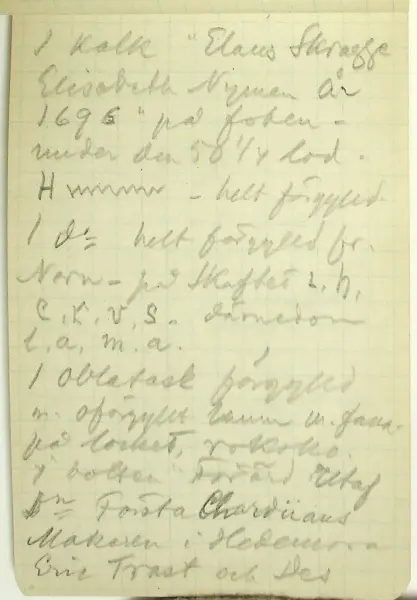 1 Kalk "Elaus Skragge
Elisabeth Nymen År
1696" på foten -
under den 50 1/4 lod.
H - helt förgylld.
1 dn helt förgylld fr.
Norn - på Skaftet L. h,
C. K. V. S. därnedom
l, a, m. a.
1 Oblatask förgylld
m. oförgylld
på locket, rokoko.
i botten Förärd Utaf
Dn Första Chardiians
Makaren i Hedemora
Eric Trast och Des